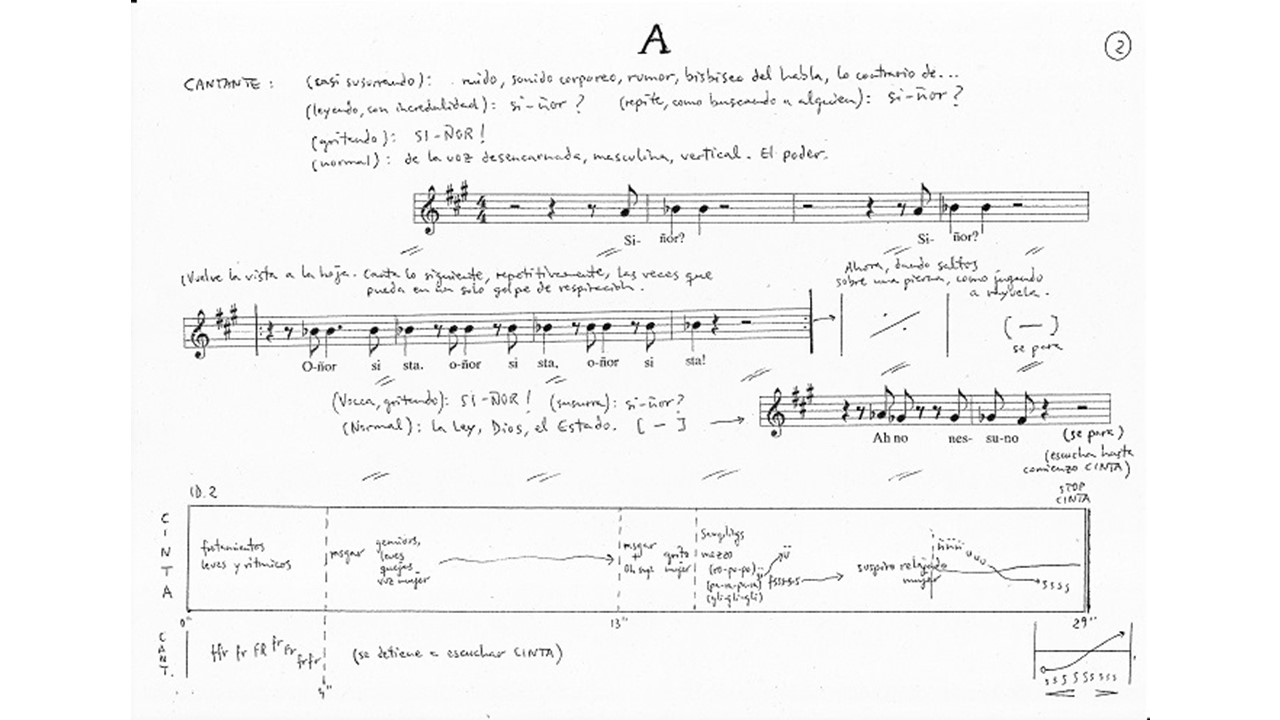 A
2
CANTANTE : (casi susurrando): ruido, sonido corporeo, rumor, bisbiseo del habla, lo contrario de...
(leyendo, con incredulidad): si-ñor ? (repite, como buscando a alguien): si-ñor ?
(gritando): SI-ÑOR !
(normal): de la voz desencarnada, masculina, vertical. El poder.
Si- ñor? Si- ñor?
(Vuelve la vista a la hoja. Canta lo siguiente, repetitivamente, las veces que
pueda en un solo golpe de respiración.
Ahora, dando saltos
sobre una pierna, como jugando
a rayuela.
[ — ]
se para
O-ñor si sta. o-ñor si sta, o-ñor si sta!
(Vocea, gritando): SI-ÑOR ! (susurra): si-ñor ?
(Normal): la Ley, Dios, el Estado. [ - ]
Ah no nes- su-no
(se para)
(escucha hasta
comienzo CINTA)
ID. 2
STOP
CINTA
CINTA
frotamientos
leves y rítmicos
rasgar
gemidos,
leves
quejas
voz mujer
rasgar
+
grito
mujer
Samplings
mezzo
(ro-po-po)
(pa-ra-pa-ra)
(gli-gli-gli)
ü
fsssss
suspiro relajado
mujer
ssss
0" 13" 29"
CANT.
ffr fr FR fr Fr frfr
(se detiene a escuchar CINTA)
sssssss